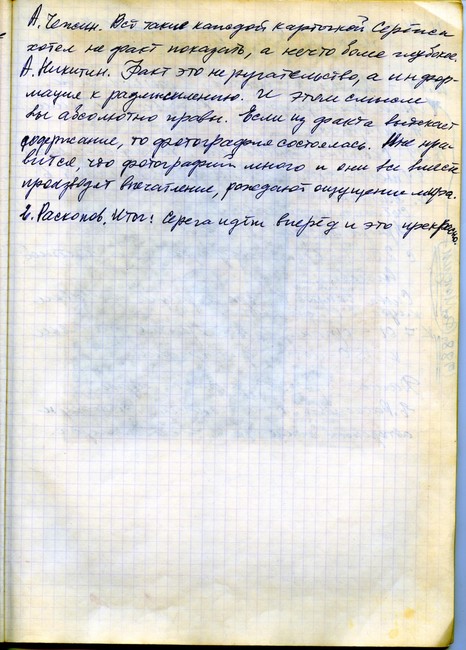 А. Чепкин. Вст такие каждой карточкой Сергей
хотел не факт показать, а нечто более глубокое.
А. Никитин. Факт это не ругательство, а инфор-
мация к размышлению. И этом смысле
вы абсолютно правы. Если из факта вытекает
содержание, то фотография состоялась. Мне нра-
вится, что фотографий много и они все вместе
производят впечатление, рождают ощущение мира.
Раскопов. Итог: Серега идёт вперёд и это прекрасно.